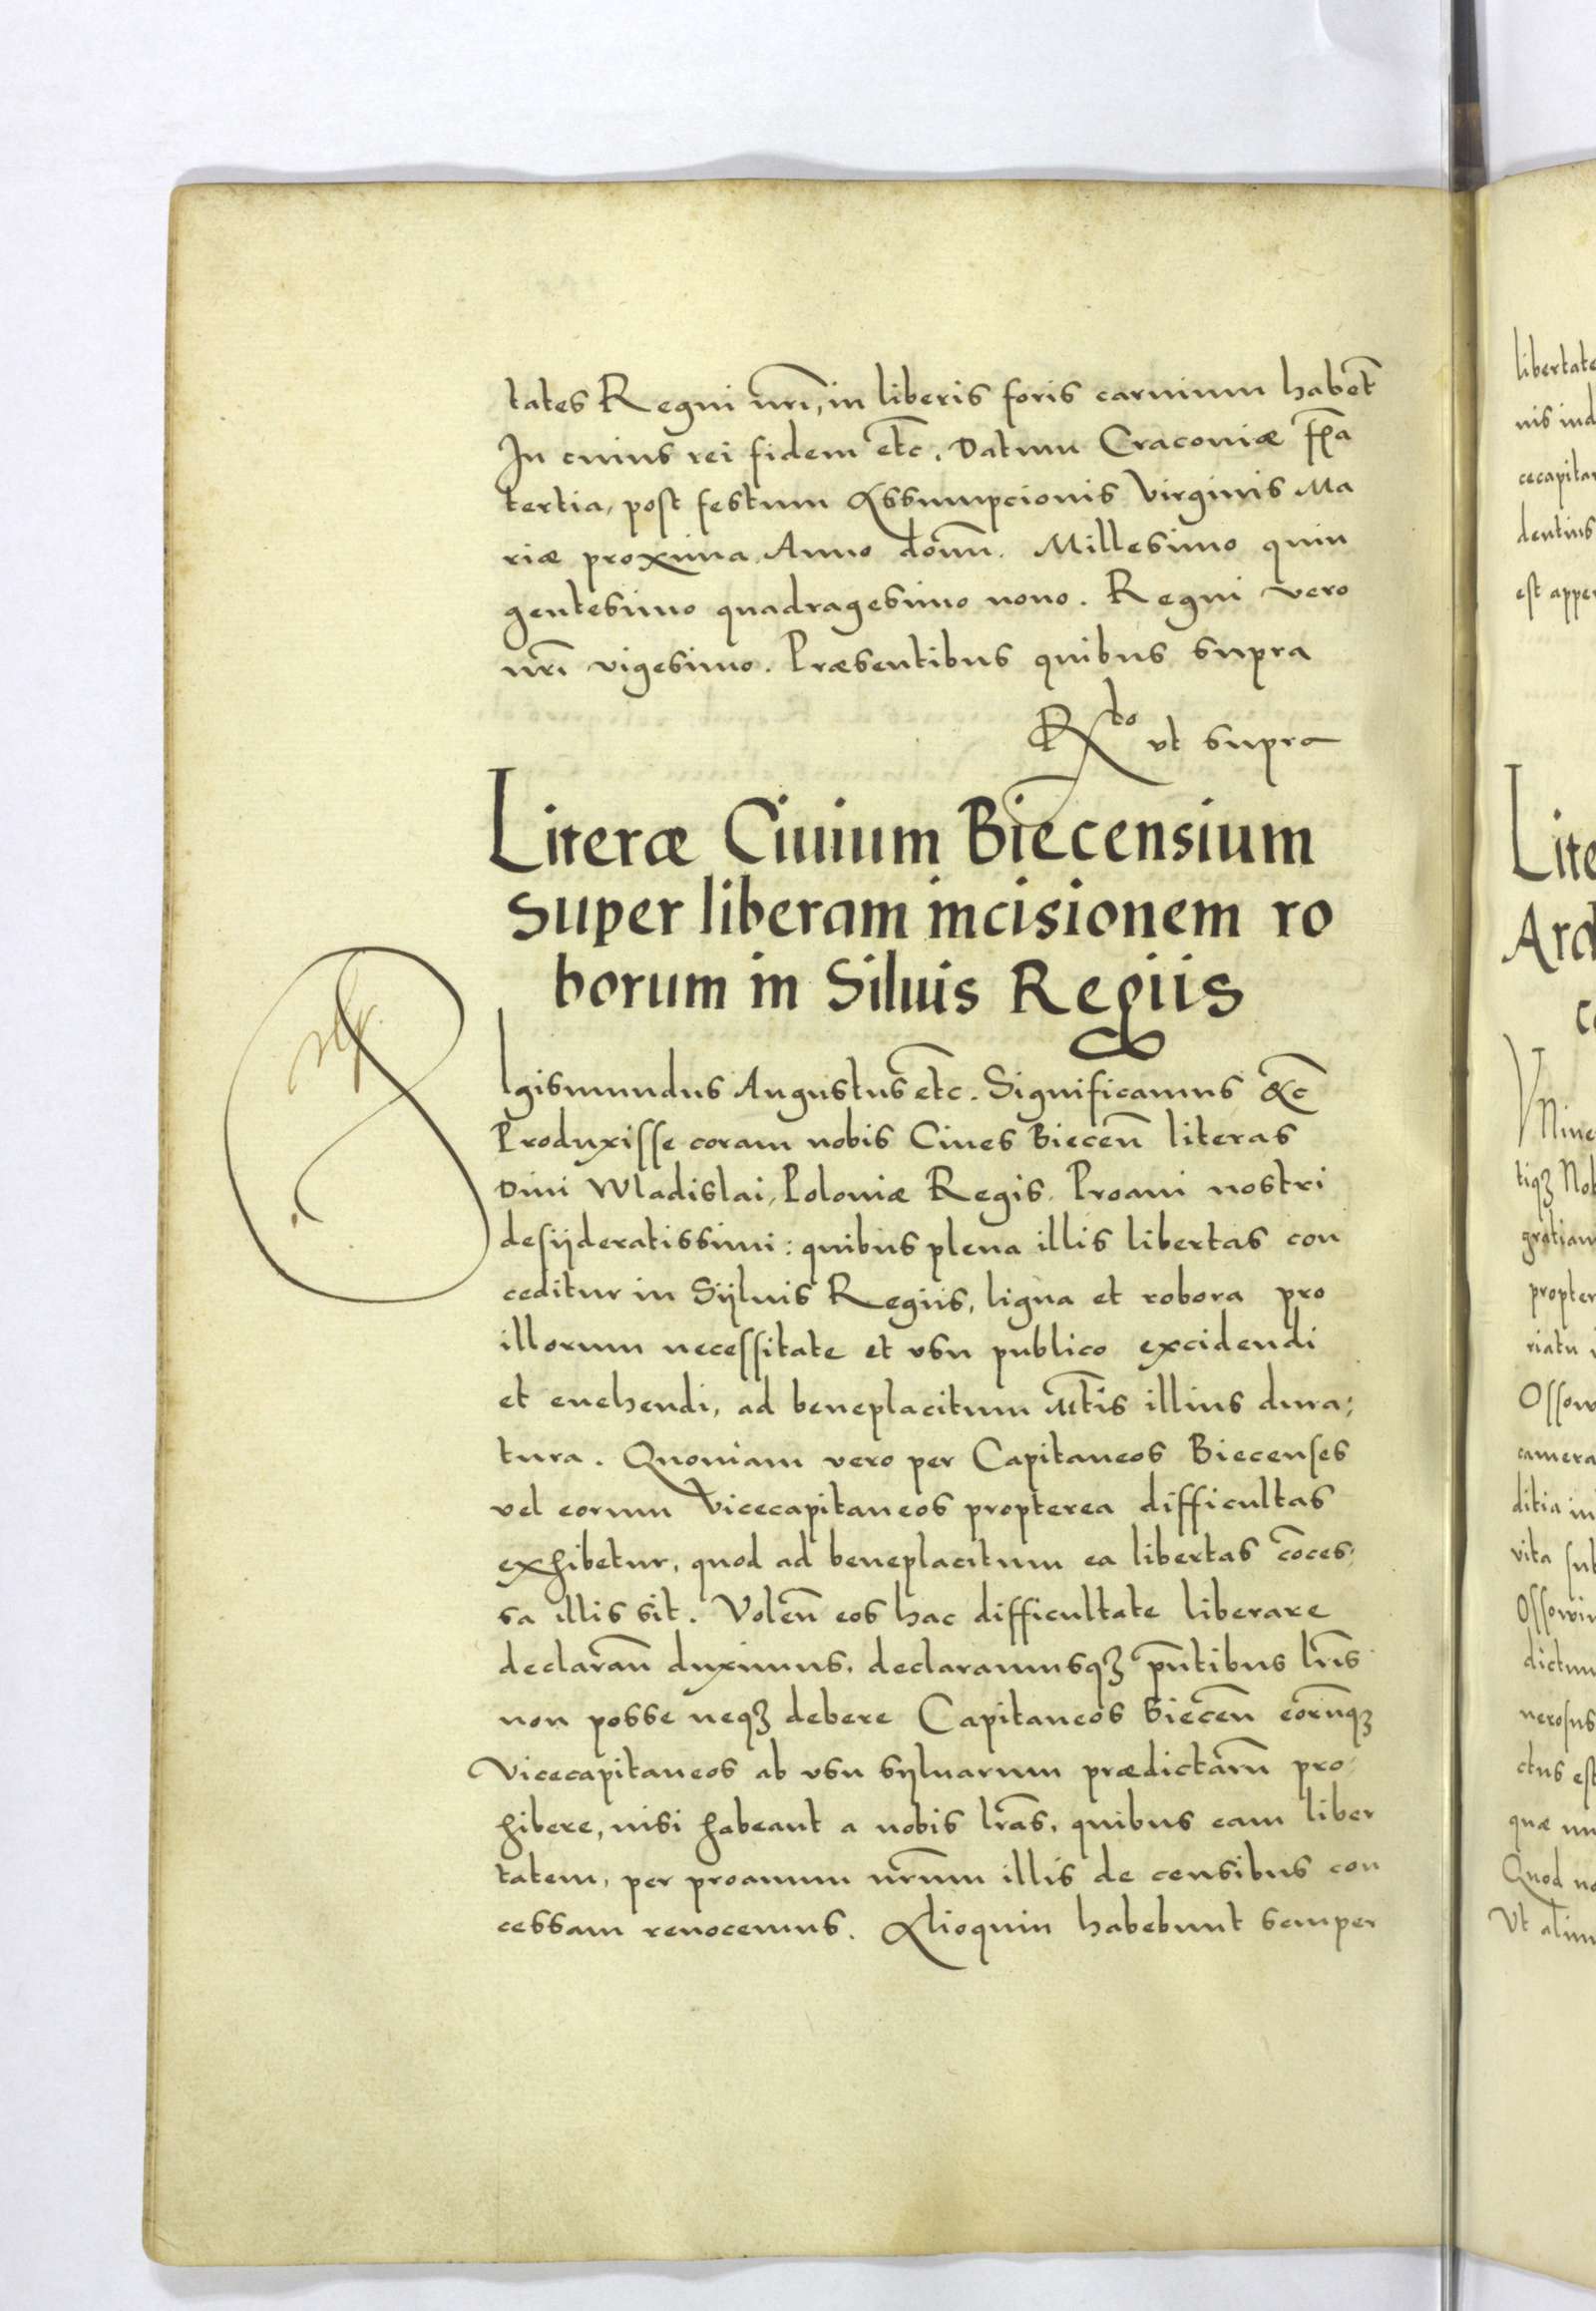 tates Regni nr̄i, in liberis foris carnium habet̄
In cuius rei fidem etc̄. Datum Cracoviæ fr̄ia
tertia, post festum Assumpcionis Virginis Ma
riæ proxima Anno domī. Millesimo quin
gentesimo quadragesimo nono. Regni vero
nr̄i vigesimo. Præsentibus quibus supra
Rto vt supra
Literæ Ciuium Biecensium
Super liberam incisionem ro
borum in Siluis Regiis
SIgismundus Augustus etc̄. Significamus &c̄
Produxisse coram nobis Ciues Biecen̄ literas
Diui Wladislai, Poloniæ Regis. Proaui nostri
desijderatissimi: quibus plena illis libertas con
ceditur in Sijluis Regiis, ligna et robora pro
illorum necessitate et vsu publico excidendi
et euehendi, ad beneplacitum Mt̄is illius dura:
tura. Quoniam vero per Capitaneos Biecenses
vel eorum Vicecapitaneos propterea difficultas
exhibetur, quod ad beneplacitum ea libertas cōces:
sa illis sit. Volen̄ eos hac difficultate liberare
declaran̄ duximus, declaramusqȝ pn̄tibus lr̄is
non posse neqȝ debere Capitaneos Biecen̄ eorūqȝ
Vicecapitaneos ab vsu sijluarum prædictarū pro
hibere, nisi habeant a nobis lr̄as, quibus eam liber
tatem, per proauum nr̄um illis de censibus con
cessam reuocemus. Alioquin habebunt semper
libertate
nis ind
cecapita
dentius
est appe
Lite
Ard
co
VNine
tiqȝ Nob
gratiam
propter
riatu i
Ossow
camera
ditia in
vita sub
Ossowin
dictum
nerosus
ctus est
quæ nu
Quod no
Vt alim